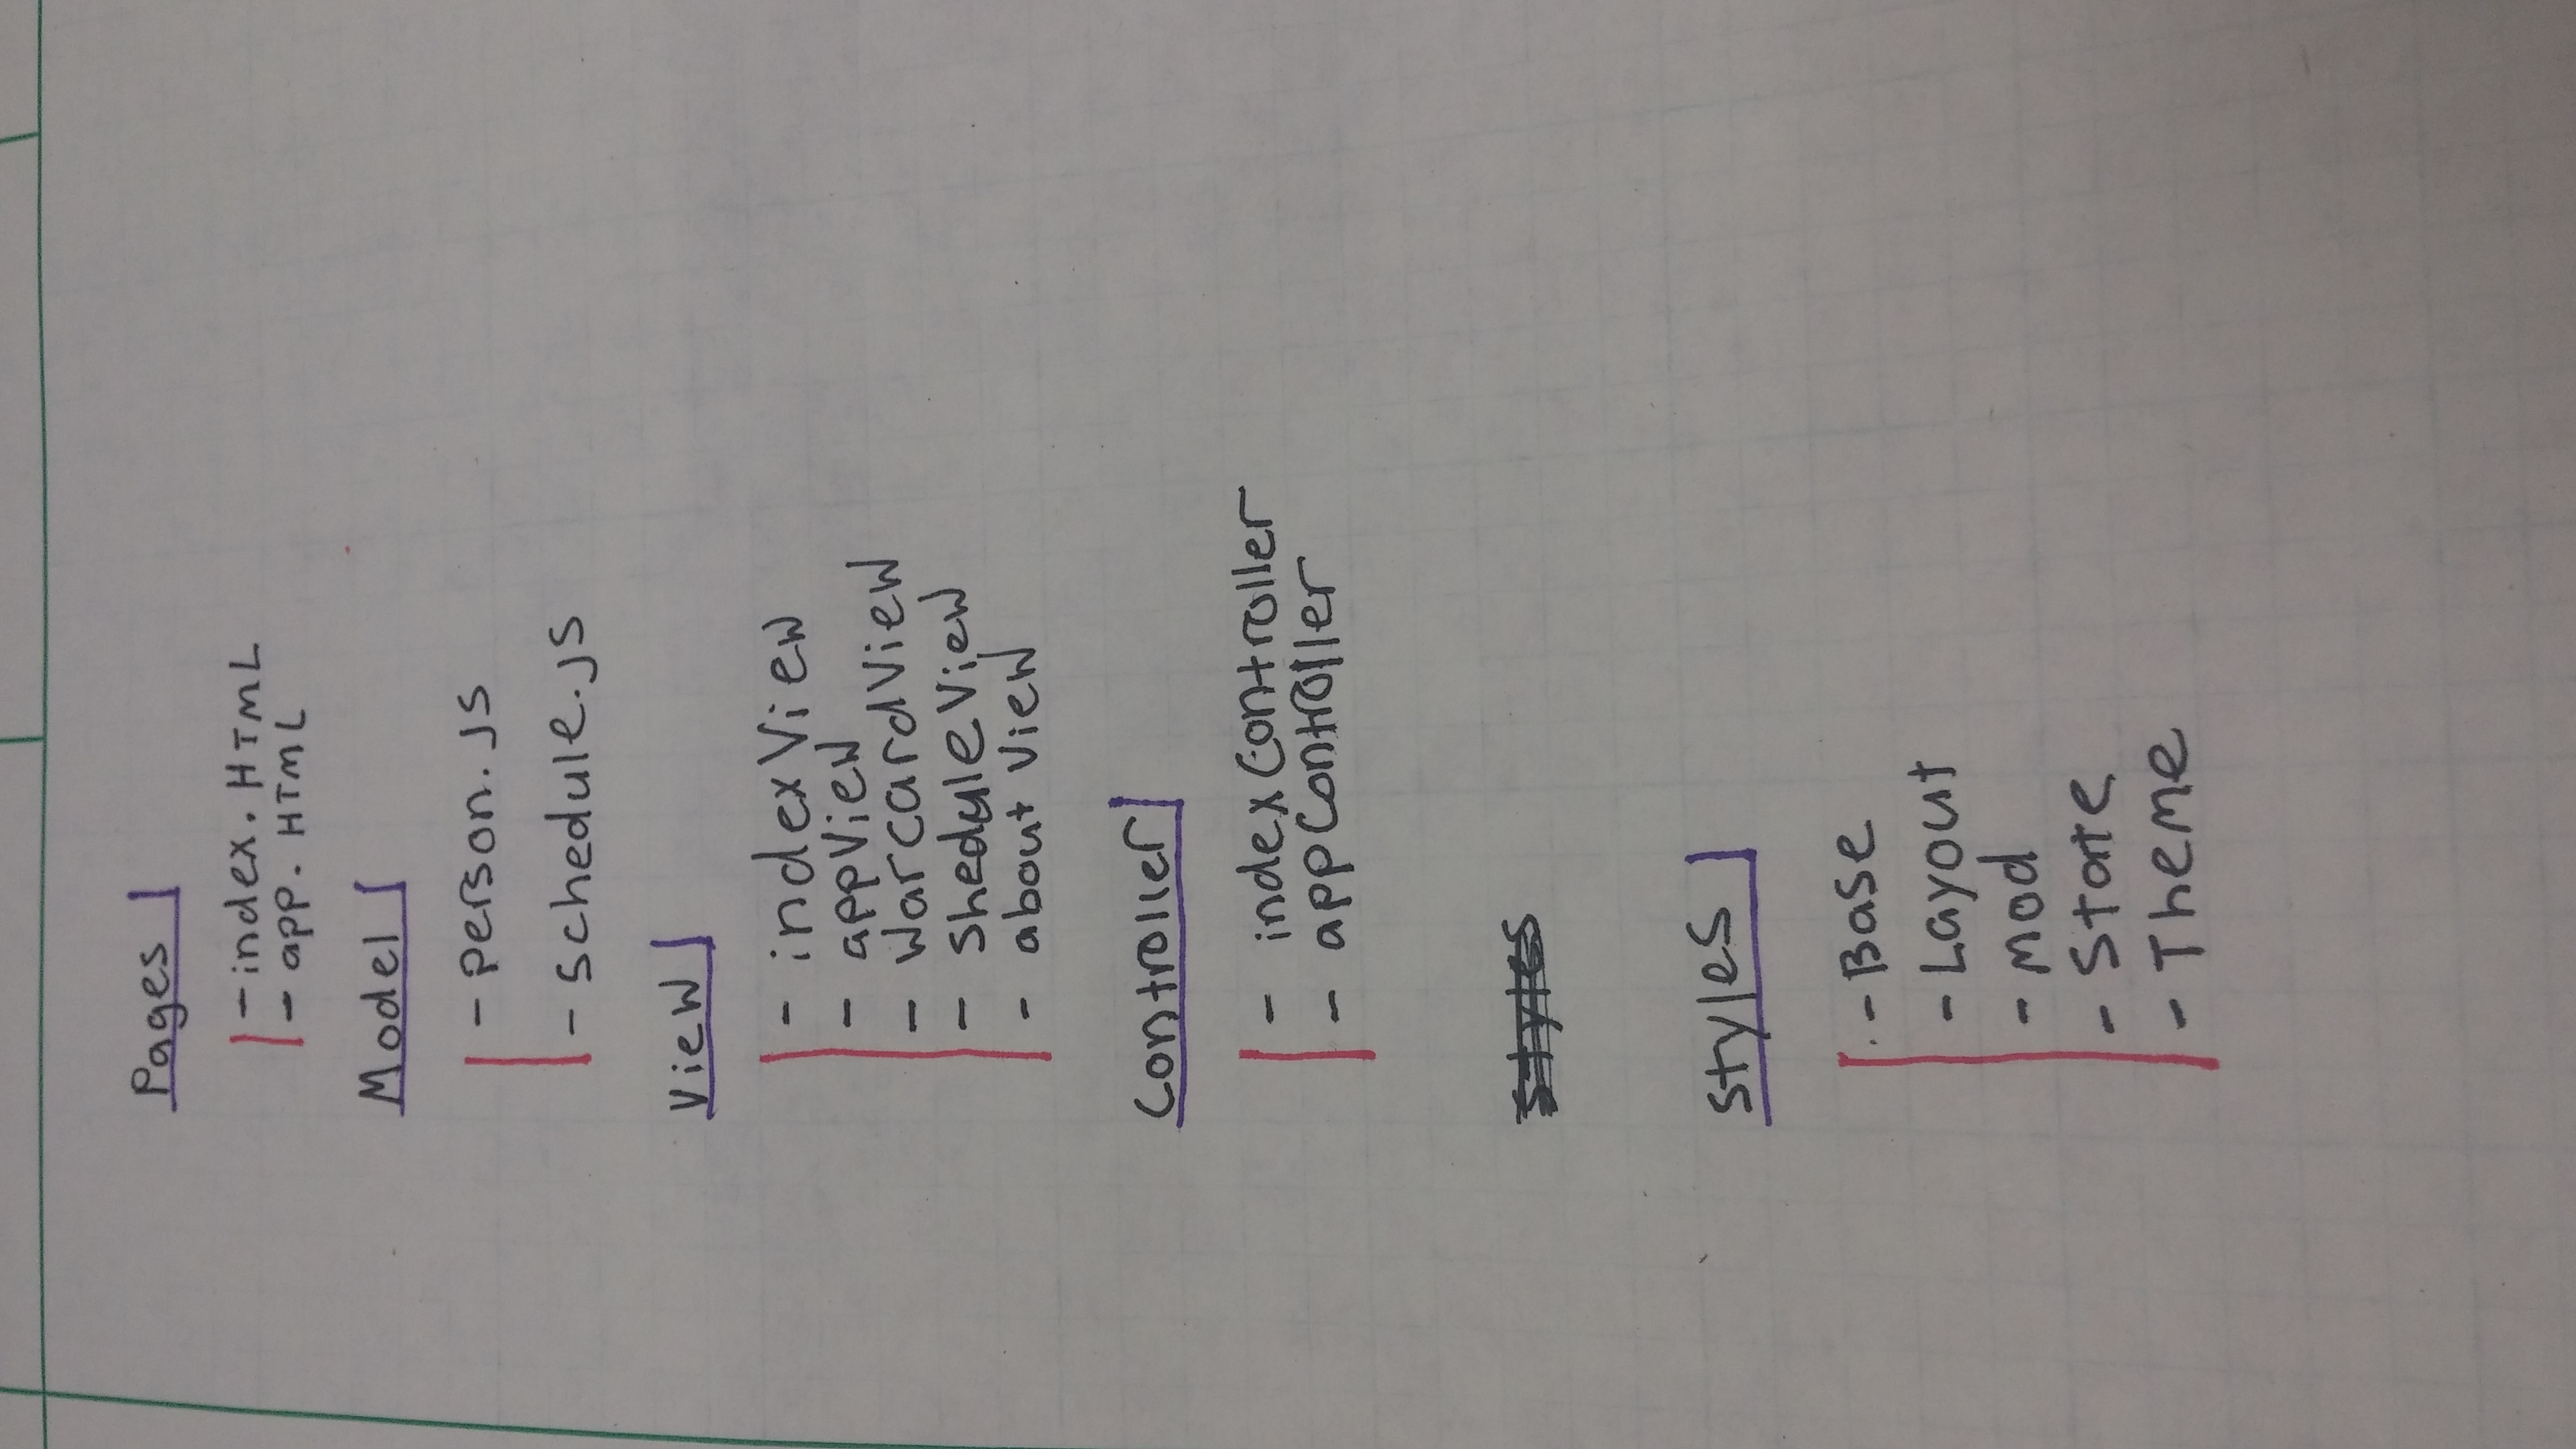 Pages
- index.HTML
- app.HTML
Model
- person.js
- schedule.js
View
- indexView
- appView
- WarcardView
- sheduleView
- about View
Controller
- indexController
- appController
styles
styles
- Base
- Layout
- mod
- State
- Theme